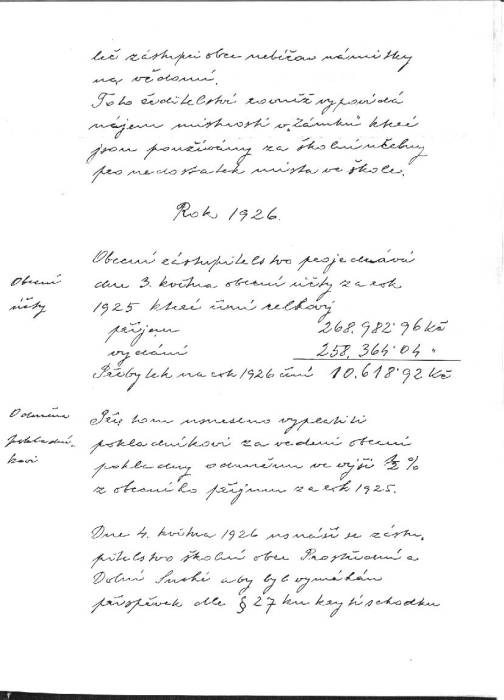 leč zástupci obce neberou námitky
na vědomí.
Toto ředitelství rovněž vypovídá
nájem místností v Zámku které
jsou používány za školní učebny
pro nedostatek místa ve škole.
Rok 1926.
Obecní zastupitelstvo projednává
Obecní
dne 3. května obecní účty za rok
účty
1925 které činí celkový
příjem 268.982·96 Kč
vydání 258.364·04 "
Přebytek na rok 1926 činí 10.618·92 Kč
Odměna
Při tom usneseno vyplatiti
pokladní-
pokladníkovi za vedení obecní
kovi
pokladny odměnu ve výši ½ %
z obecního příjmu za rok 1925.
Dne 4. května 1926 usnáší se zastu-
pitelstvo školní obce Prostřední a
Dolní Suché aby byl vymáhán
příspěvek dle § 27 ku krytí schodku